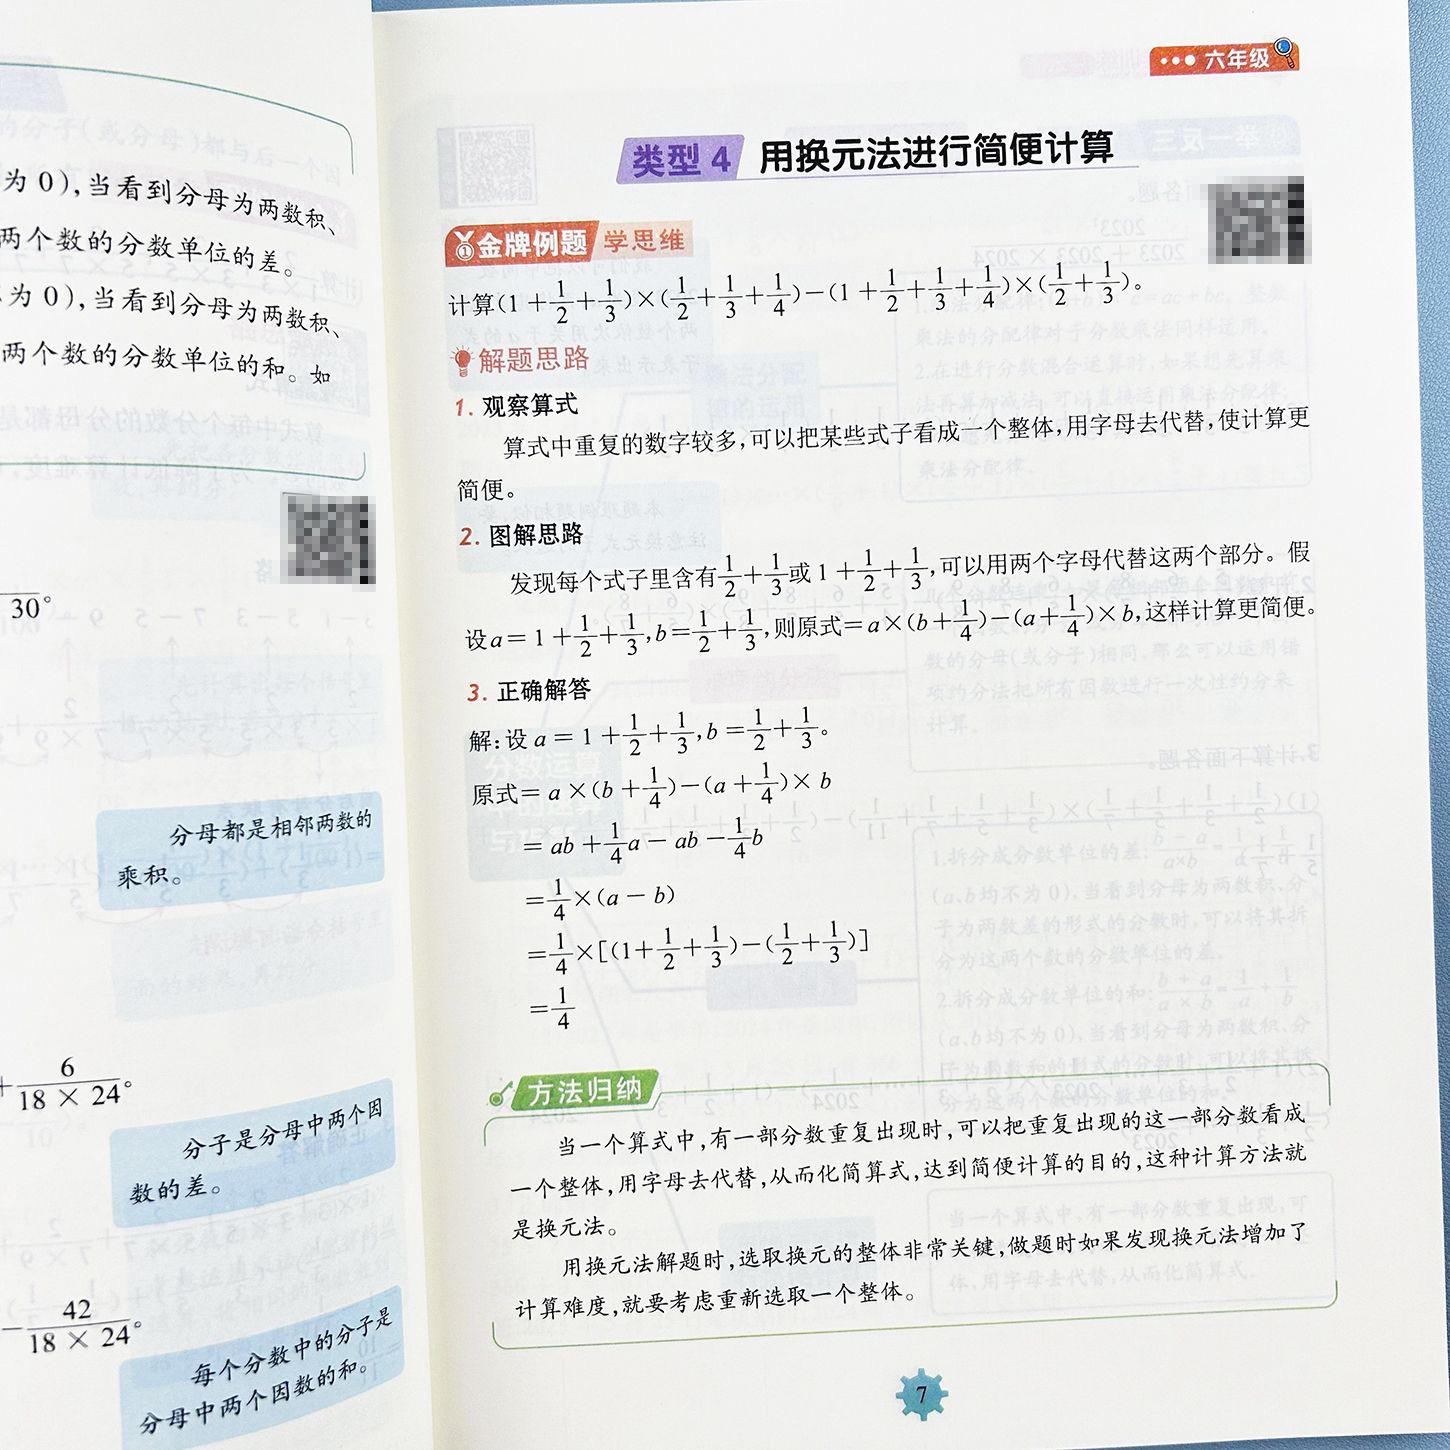 为 0),当看到分母为两数积、
两个数的分数单位的差。
为 0),当看到分母为两数积、
两个数的分数单位的和。如
30。
分母都是相邻两数的
乘积。
+6/(18 × 24)。
分子是分母中两个因
数的差。
-42/(18 × 24)。
每个分数中的分子是
分母中两个因数的和。
六年级
类型 4 用换元法进行简便计算
①金牌例题 学思维
计算(1+1/2+1/3)×(1/2+1/3+1/4)-(1+1/2+1/3+1/4)×(1/2+1/3)。
解题思路
1. 观察算式
算式中重复的数字较多,可以把某些式子看成一个整体,用字母去代替,使计算更
简便。
2. 图解思路
发现每个式子里含有1/2+1/3或1+1/2+1/3,可以用两个字母代替这两个部分。假
设a=1+1/2+1/3,b=1/2+1/3,则原式=a×(b+1/4)-(a+1/4)×b,这样计算更简便。
3. 正确解答
解:设a=1+1/2+1/3,b=1/2+1/3。
原式=a×(b+1/4)-(a+1/4)×b
=ab+1/4a-ab-1/4b
=1/4×(a-b)
=1/4×[(1+1/2+1/3)-(1/2+1/3)]
=1/4
方法归纳
当一个算式中,有一部分数重复出现时,可以把重复出现的这一部分数看成
一个整体,用字母去代替,从而化简算式,达到简便计算的目的,这种计算方法就
是换元法。
用换元法解题时,选取换元的整体非常关键,做题时如果发现换元法增加了
计算难度,就要考虑重新选取一个整体。
7